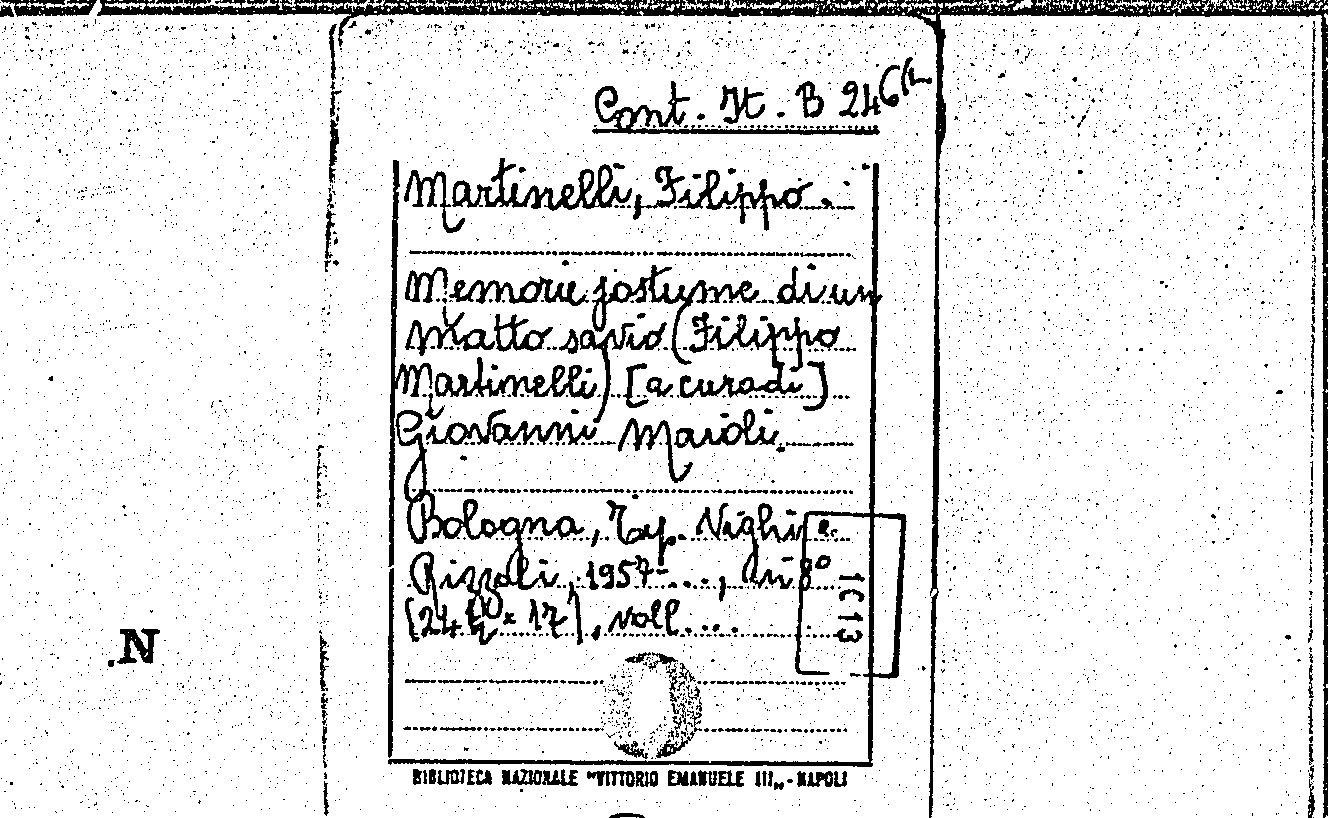 Cont. It. B 246(1-
Martinelli, Filippo.
Memorie postume di un
matto savio (Filippo
Martinelli) [a cura di]
Giovanni Maioli.
Bologna, Tip. Vighi e
Rizzoli, 1957-..., in 8°
(24 ½ x 17), voll....
1C13
.N
BIBLIOTECA NAZIONALE "VITTORIO EMANUELE III„ - NAPOLI